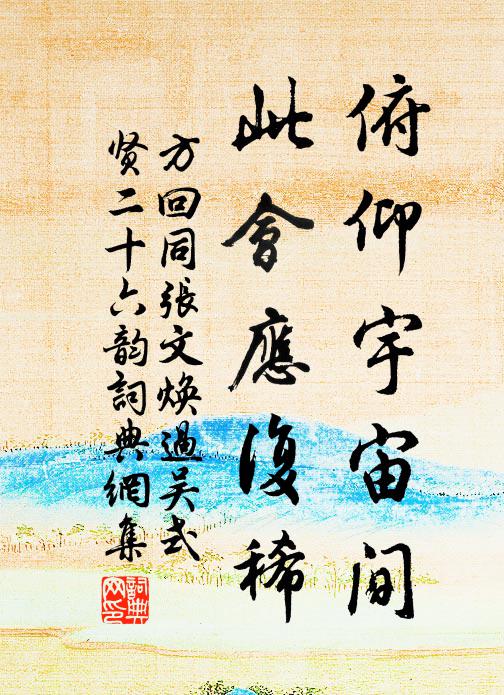 俯仰宇宙间
此會應復稀
方回同張文焕過吴式
贤二十六韵詞典網集
詞典
网